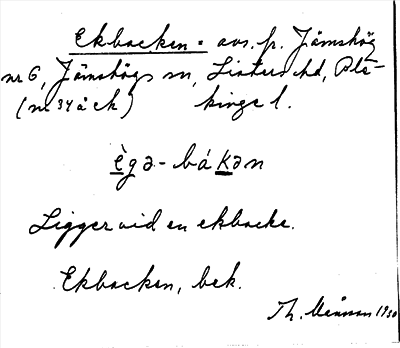 Ekbacken = avs. fr. Jämshög
nr 6, Jämshögs sn, Listers hd, Ble-
(nr 34 å ek) kinge l.
ègə-bákən
Ligger vid en ekbacke.
Ekbacken, bek.
Th. 1930